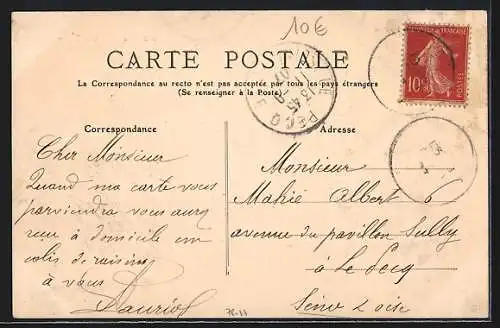 10€
CARTE POSTALE
La Correspondance au recto n'est pas acceptée par tous les pays étrangers
(Se renseigner à la Poste)
Correspondance
Cher Monsieur
Quand ma carte vous
parviendra vous aurez
reçu à domicile un
colis de raisins
à vous
Lauriol
Adresse
Monsieur
Mahié Albert 6
avenue du pavillon Sully
à le Pecq
Seine & Oise
78-11
13-45
PECQ
10c
POSTES